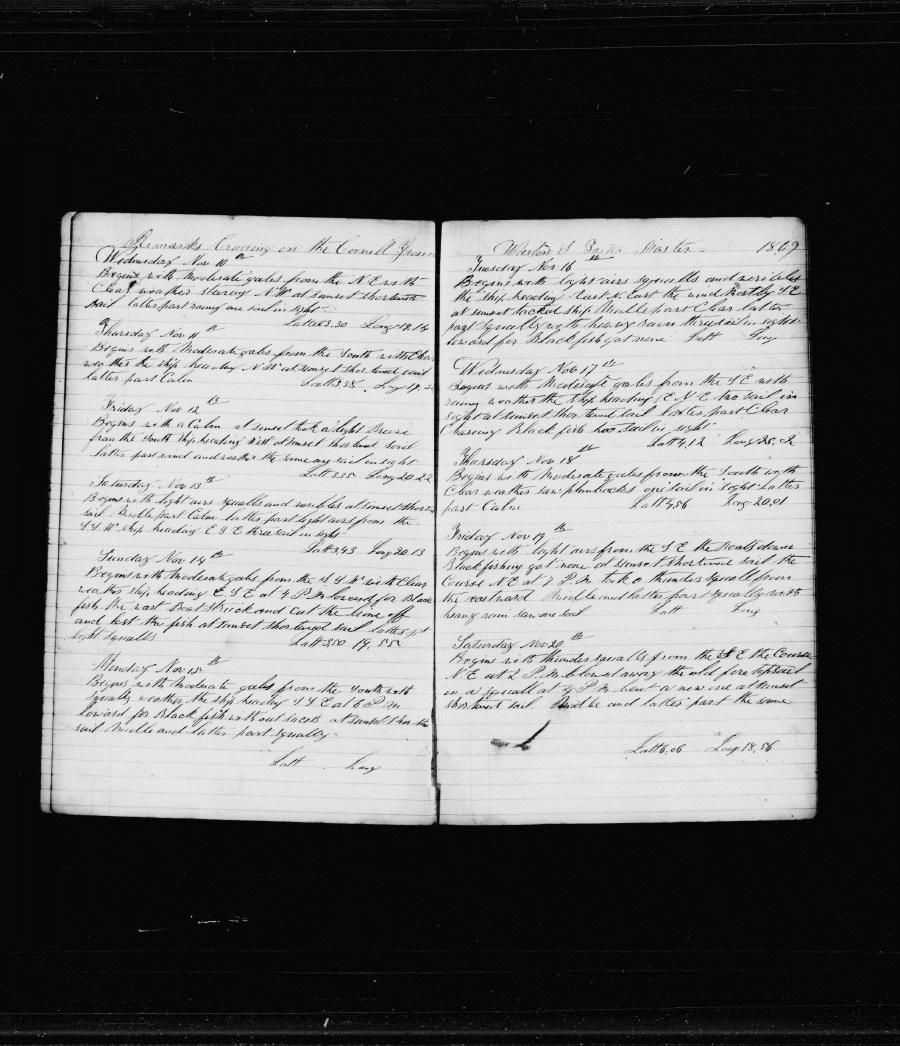 Remarks Cruising on the Cornell Gran
Wednesday Nov 10th
Begins with Moderate gales from the N E with
Clear weather stering N W at sunset shortend
sail latter part rainy one sail in sight
Latt 3.30 Long 19.14
Thursday Nov 11th
Begins with Moderate gales from the South with Clear
weather the ship heading N W at sunset shortened sail
latter part Calm Latt 3.35 Long 19.
Friday Nov 12th
Begins with a Calm at sunset took a light Breeze
from the South ship heading at sunset shortend sail
latter part wind and weather the same one sail in sight
Latt 3.35 Long 20.22
Saturday Nov 13th
Begins with light airs squalls and varibles at sunset shortend
sail Middle part Calm latter part light airs from the
S S W ship heading E S E three sail in sight
Latt 3.43 Long 20.13
Sunday Nov 14th
Begins with Moderate gales from the S S W with Clear
weather ship heading E S E at 4 P M lowered for Black
fish the wast Boat Struck and Cut the line off
and lost the fish at sunset shortened sail latter pt
light squalls Latt 3.50 19.55
Monday Nov 15th
Begins with Moderate gales from the South with
squally weather the ship heading S S E at 6 P M
lowerd for Black fish with out sucess at sunset shortend
sail Middle and latter part squally
Latt Long
Master 1869
Tuesday Nov 16th
Begins with light airs squalls and varibles
the ship heading East N East the wind Mostly S E
at sunset tacked ship Middle part Clear latter
part squally with heavy rain three sail in sight
lowerd for Black fish got none Latt Long
Wednesday Nov 17th
Begins with Moderate gales from the S E with
rainy weather the ship heading E N E two sail in
sight at sunset shortend sail latter part Clear
Chaseing Black fish two sail in sight
Latt 4.12 Long 20.02
Thursday Nov 18th
Begins with Moderate gales from the South with
Clear weather saw one sail in sight latter
part Calm Latt 4.56 Long 20.01
Friday Nov 19th
Begins with light airs from the S E the Boats down
Blackfishing got none at sunset shortend sail the
Course N E at 7 P M took a thunder squall from
the eastward Middle and latter part squally with
heavy rain saw one sail Latt Long
Saturday Nov 20th
Begins with thunder squalls from the S E the Course
N E at 2 P M blowed away the old fore topsail
in a squall at 4 P M bent a new one at sunset
shortened sail Middle and latter part the same
Latt 6.06 Long 18.56